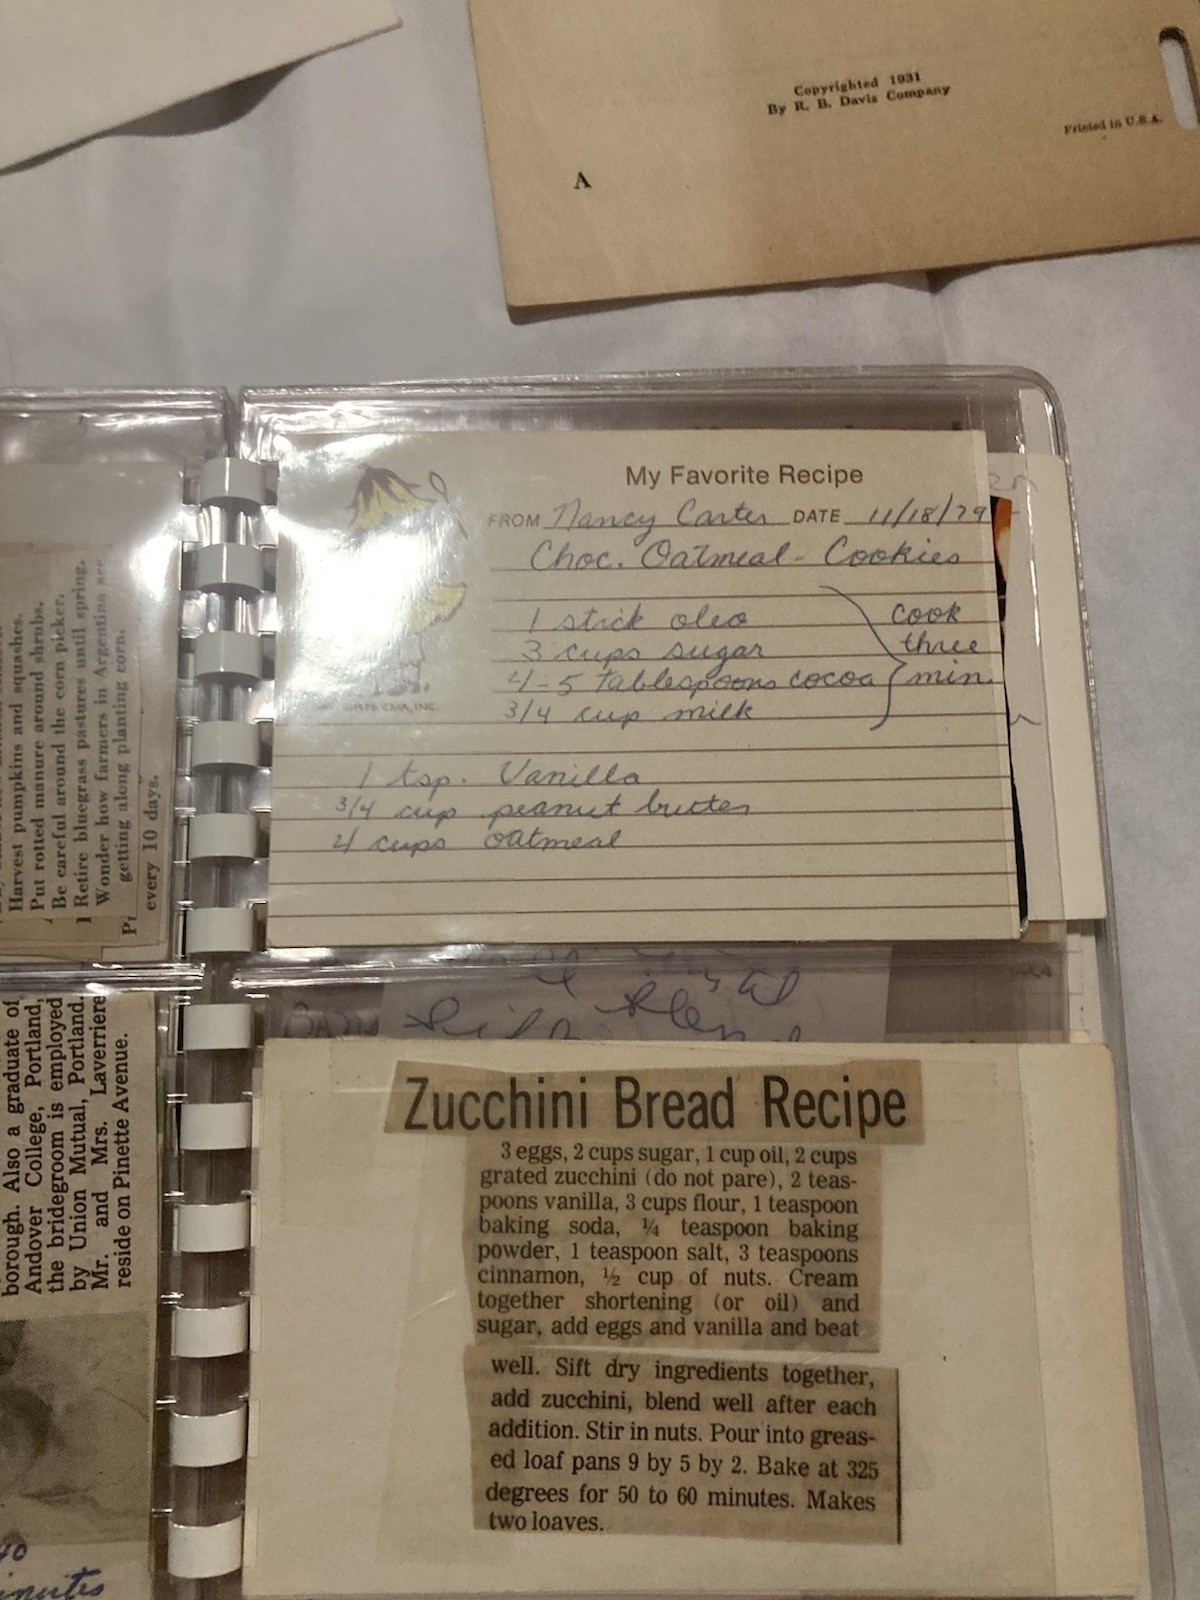 Copyrighted 1931
By R. B. Davis Company
Printed in U.S.A.
A
My Favorite Recipe
FROM Nancy Carter DATE 11/18/79
Choc. Oatmeal - Cookies
1 stick oleo
3 cups sugar
4-5 tablespoons cocoa
3/4 cup milk
cook
three
min.
CMA, INC.
1 tsp. Vanilla
3/4 cup peanut butter
4 cups oatmeal
Harvest pumpkins and squashes.
Put rotted manure around shrubs.
Be careful around the corn picker.
Retire bluegrass pastures until spring.
Wonder how farmers in Argentina are
getting along planting corn.
every 10 days.
Zucchini Bread Recipe
3 eggs, 2 cups sugar, 1 cup oil, 2 cups
grated zucchini (do not pare), 2 teas-
poons vanilla, 3 cups flour, 1 teaspoon
baking soda, ¼ teaspoon baking
powder, 1 teaspoon salt, 3 teaspoons
cinnamon, ½ cup of nuts. Cream
together shortening (or oil) and
sugar, add eggs and vanilla and beat
well. Sift dry ingredients together,
add zucchini, blend well after each
addition. Stir in nuts. Pour into greas-
ed loaf pans 9 by 5 by 2. Bake at 325
degrees for 50 to 60 minutes. Makes
two loaves.
borough. Also a graduate of
Andover College, Portland,
the bridegroom is employed
by Union Mutual, Portland.
Mr. and Mrs. Laverriere
reside on Pinette Avenue.